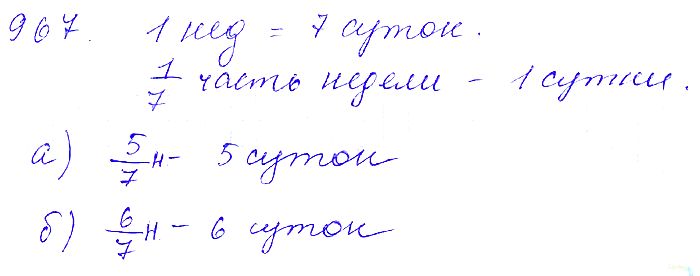 967. 1 нед = 7 суток.
1/7 часть недели - 1 сутки.
а) 5/7 н - 5 суток
б) 6/7 н - 6 суток